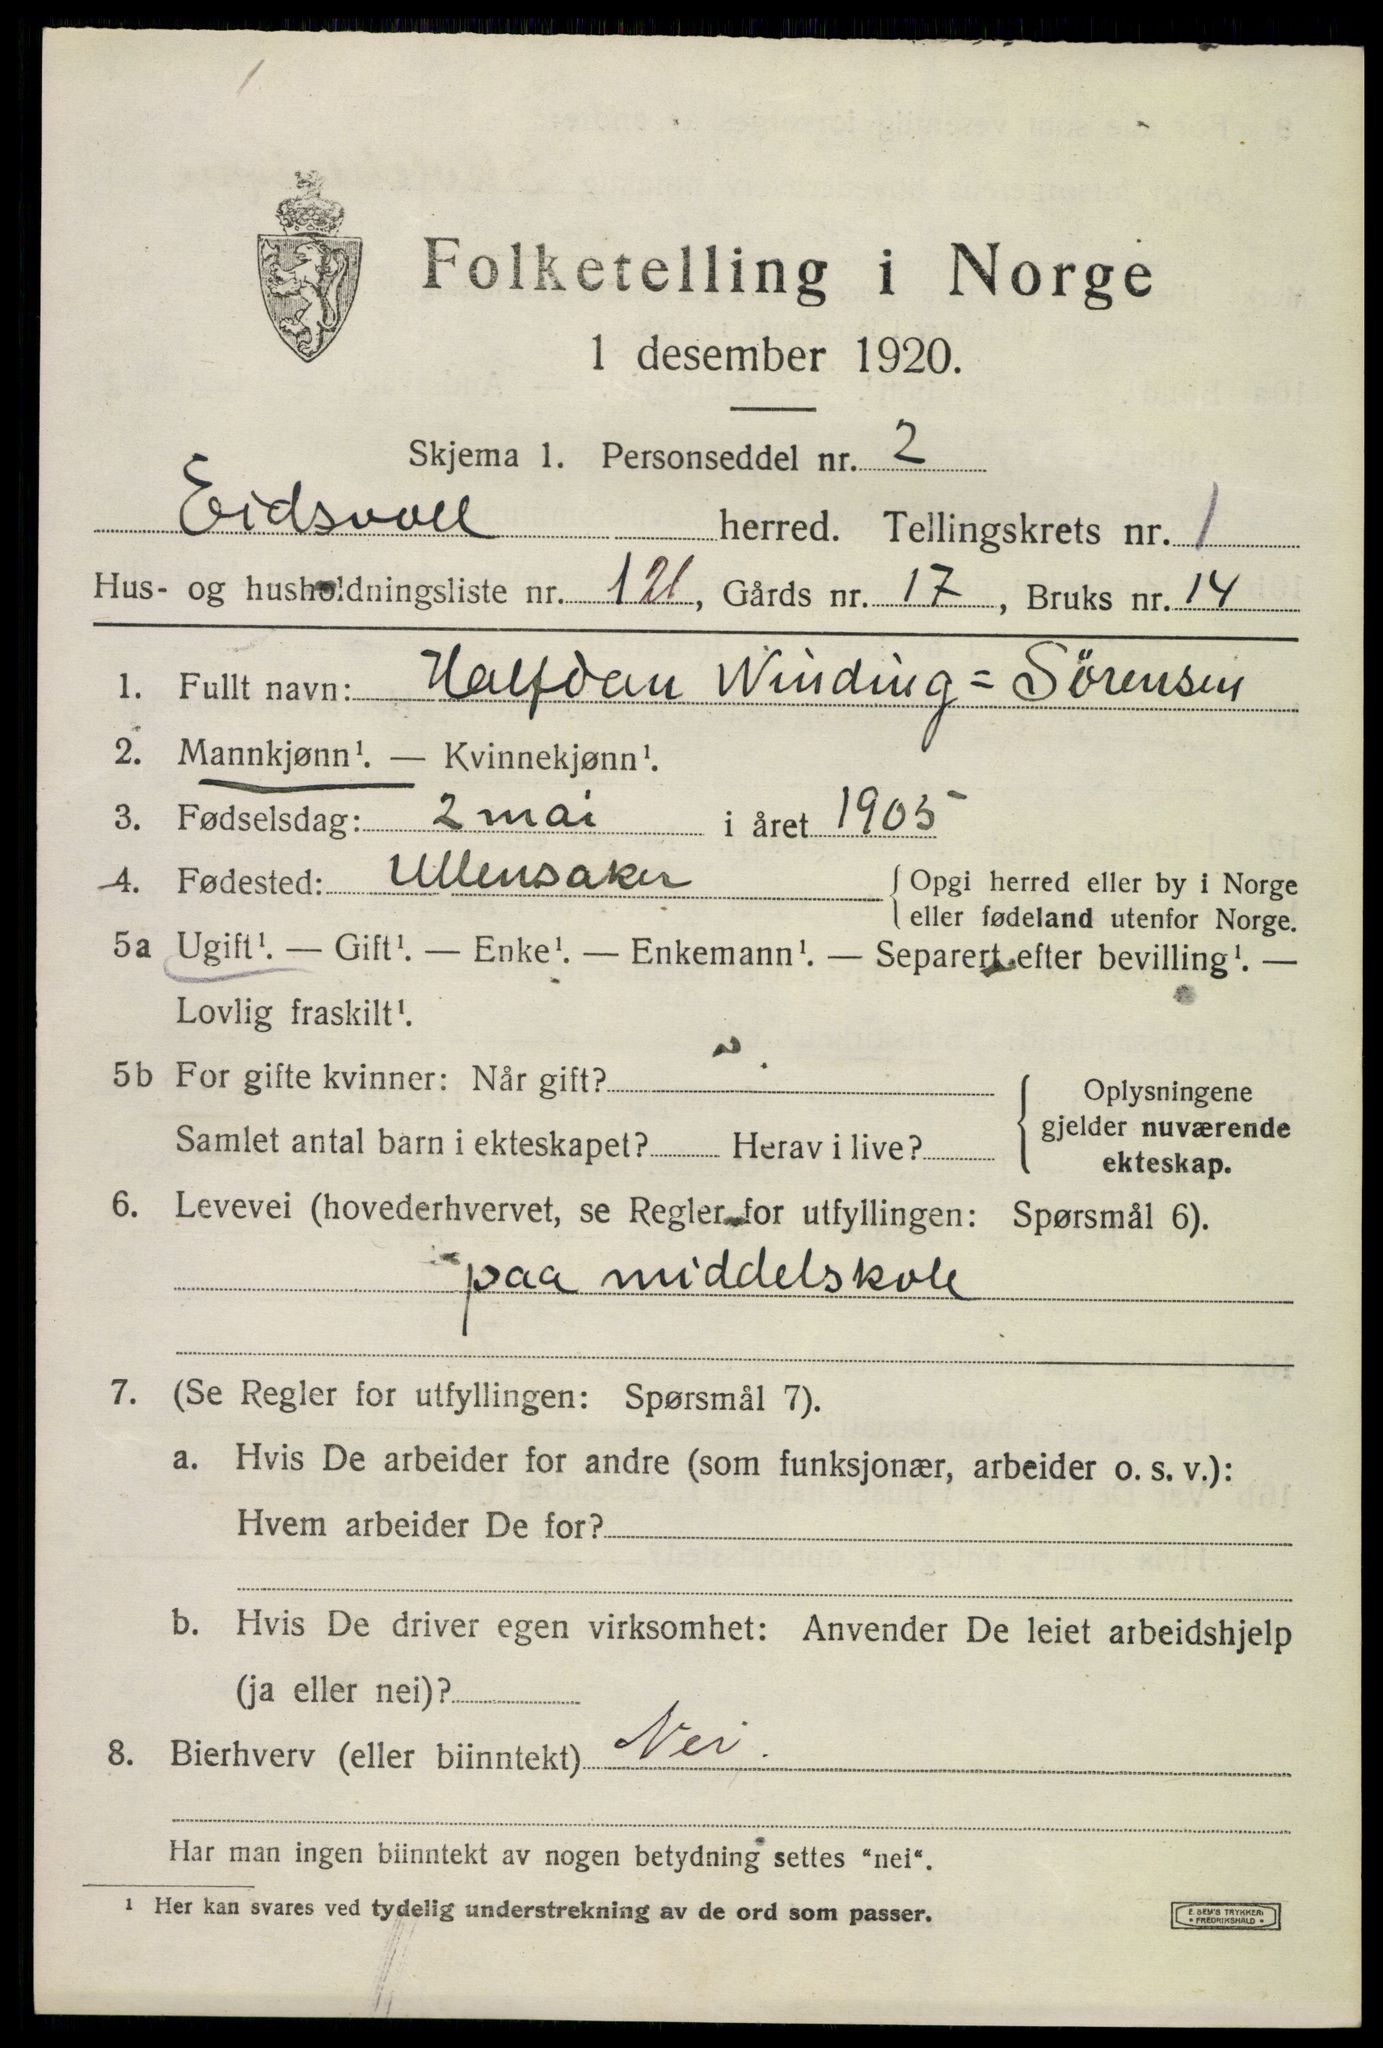 Folketelling i Norge
1 desember 1920.
Skjema 1. Personseddel nr. 2
Eidsvoll herred. Tellingskrets nr. 1
Hus- og husholdningsliste nr. 121, Gårds nr. 17, Bruks nr. 14
1. Fullt navn: Halfdan Winding=Sörensen
2. Mannkjønn¹. — Kvinnekjønn¹.
3. Fødselsdag: 2 mai i året 1905
4. Fødested: Ullensaker { Opgi herred eller by i Norge
eller fødeland utenfor Norge.
5a Ugift¹. — Gift¹. — Enke¹. — Enkemann¹. — Separert efter bevilling¹. —
Lovlig fraskilt¹.
5b For gifte kvinner: Når gift? { Oplysningene
gjelder nuværende
Samlet antal barn i ekteskapet? Herav i live?
ekteskap.
6. Levevei (hovederhvervet, se Regler for utfyllingen: Spørsmål 6).
paa middelskole
7. (Se Regler for utfyllingen: Spørsmål 7).
a. Hvis De arbeider for andre (som funksjonær, arbeider o. s. v.):
Hvem arbeider De for?
b. Hvis De driver egen virksomhet: Anvender De leiet arbeidshjelp
(ja eller nei)?
8. Bierhverv (eller biinntekt) Nei.
Har man ingen biinntekt av nogen betydning settes "nei".
¹ Her kan svares ved tydelig understrekning av de ord som passer.
E. SEM'S TRYKKERI
• FREDRIKSHALD •